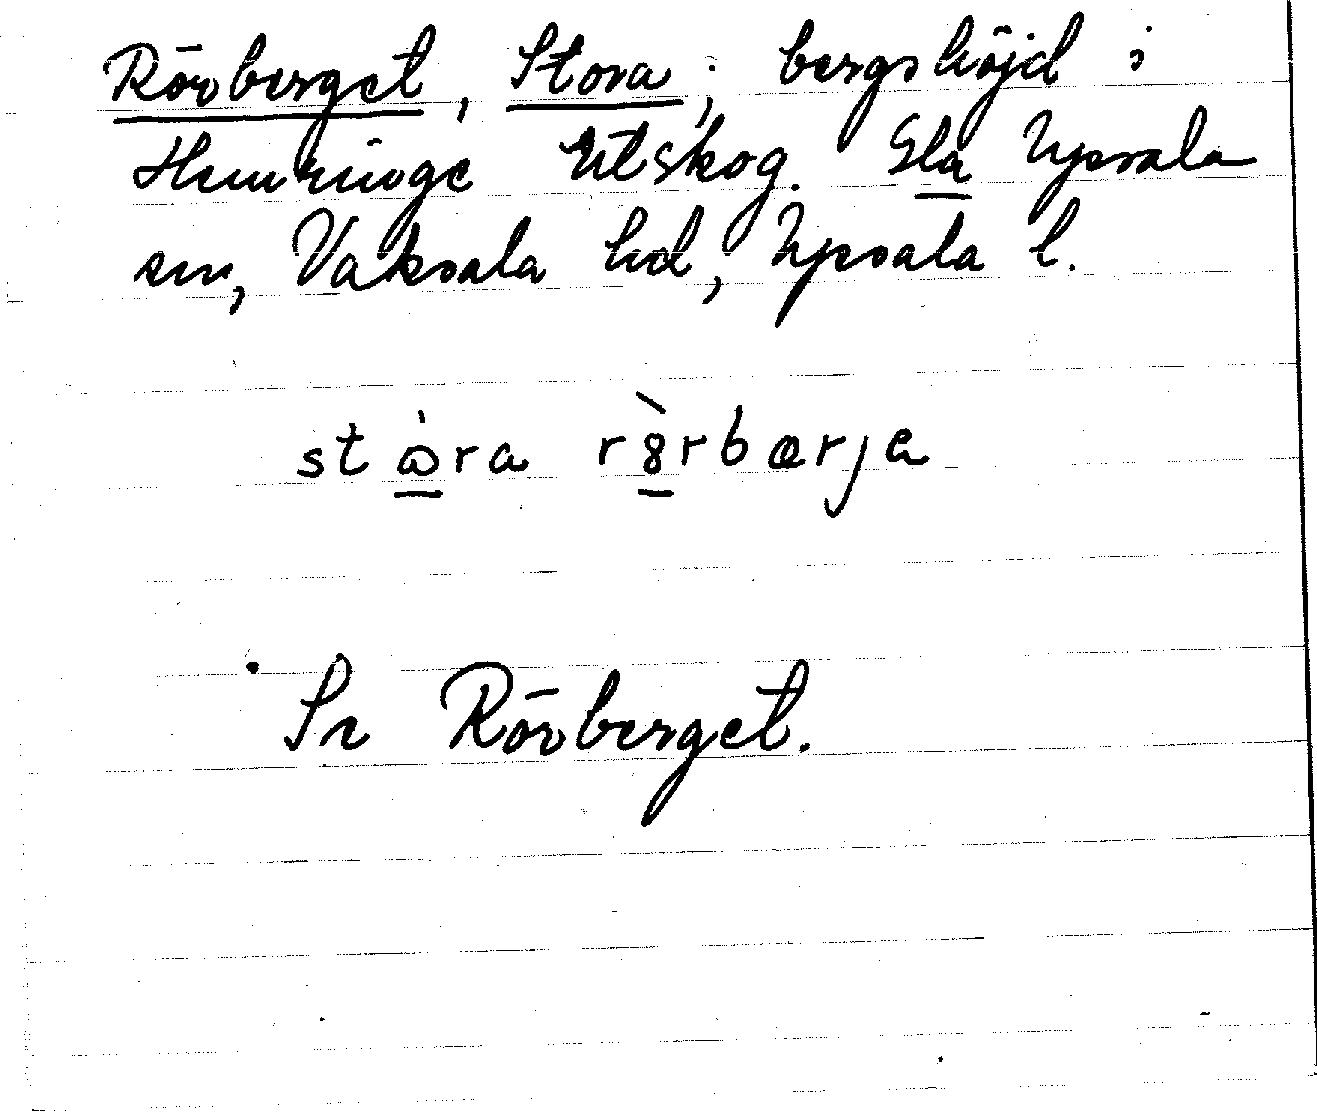 Rörberget, Stora; bergshöjd i
Hemringe Utskog. Gla Upsala
sn, Vaksala hd, Upsala l.
stɷ̀ra r8̀rbærja
Sr Rörberget.